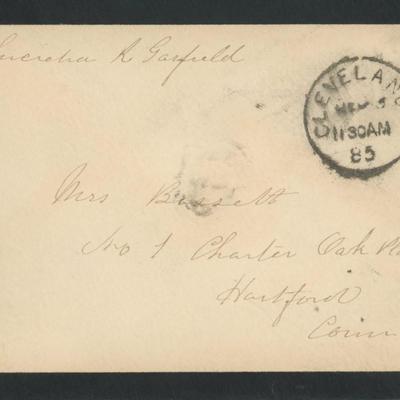 Lucretia R Garfield
CLEVELAN
11 30 AM
85
Mrs Bissett
No 1 Charter Oak Pla
Hartford
Conn